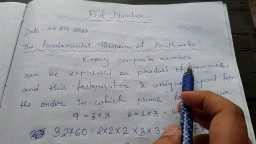 Real Number
Date:
The Fundamental Theorem of Arithmetic
Every composite number
can be expressed as product of
and this factorisation is unique, apart from
the order in which prime
9 = 3 × 3
32760 = 2×2×2×3×3